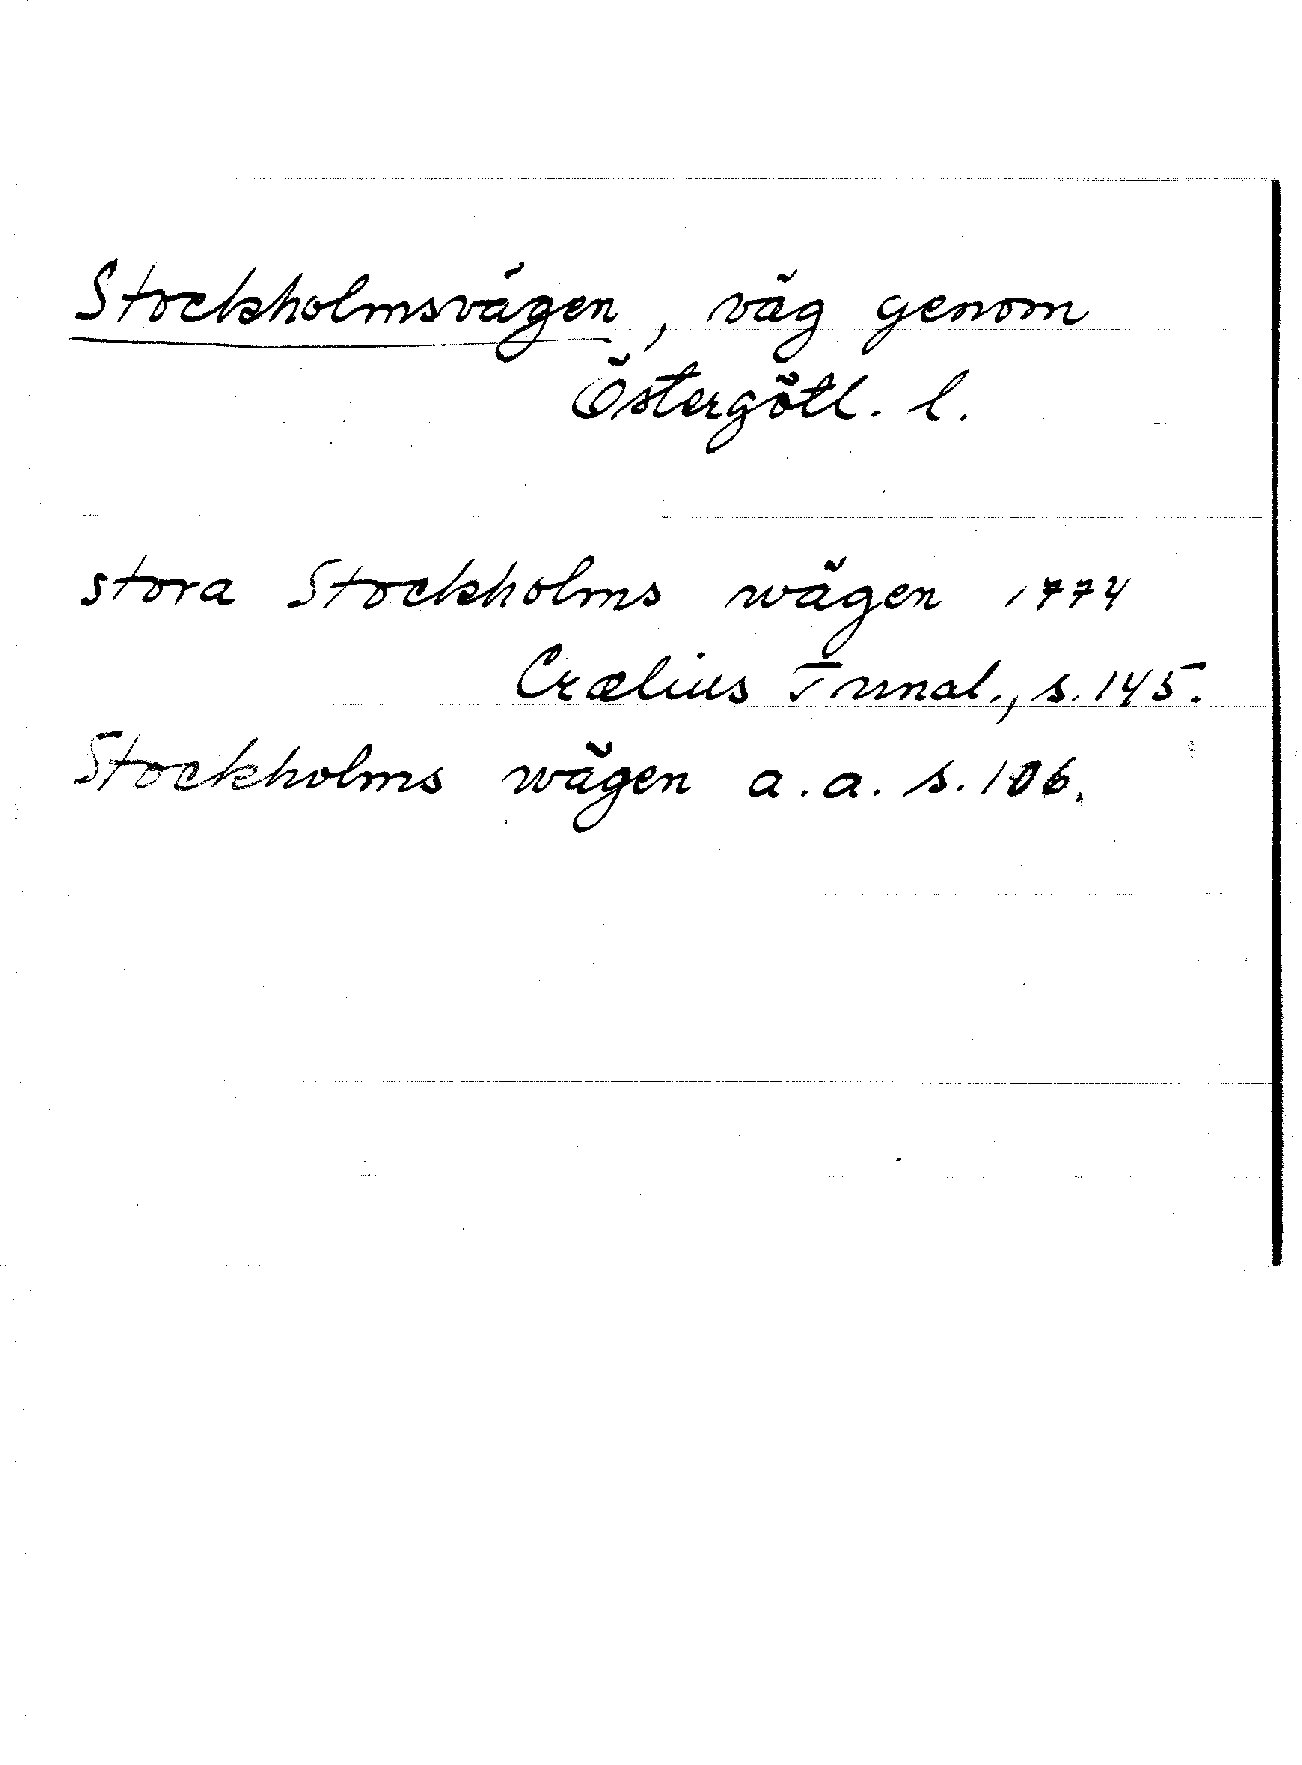 Stockholmsvägen, väg genom
Östergötl. l.
stora Stockholms wägen 1774
Crælius Tunal., s. 145.
Stockholms wägen a.a. s. 106.